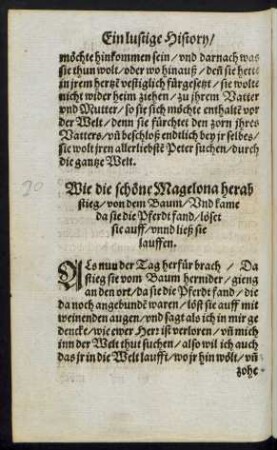 Ein lustige History/
möchte hinkommen sein/ vnd darnach was
sie thun wolt/ oder wo hinauß/ deñ sie hette
in jrem hertzē vestiglich fürgesetzt/ sie wolte
nicht wider heim ziehen/ zu jhrem Vatter
vnd Mutter/ so sie sich möchte enthaltē vor
der Welt/ denn sie fürchtet den zorn jhres
Vatters/ vñ beschloß endtlich bey jr selbes/
sie wolt jren allerliebstē Peter suchen/ durch
die gantze Welt.
30
Wie die schöne Magelona herab
stieg/ von dem Baum/ Vnd kame
da sie die Pferdt fand/ löset
sie auff/ vnnd ließ sie
lauffen.
ALs nun der Tag herfür brach/ Da
stieg sie vom Baum hernider/ gieng
an den ort/ da sie die Pferdt fand/ die
da noch angebundē waren/ löst sie auff mit
weinenden augen/ vnd sagt als ich in mir ge
dencke/ wie ewer Herr ist verloren/ vñ mich
inn der Welt thut suchen/ also wil ich auch
das jr in die Welt laufft/ wo jr hin wölt/ vñ
zohe